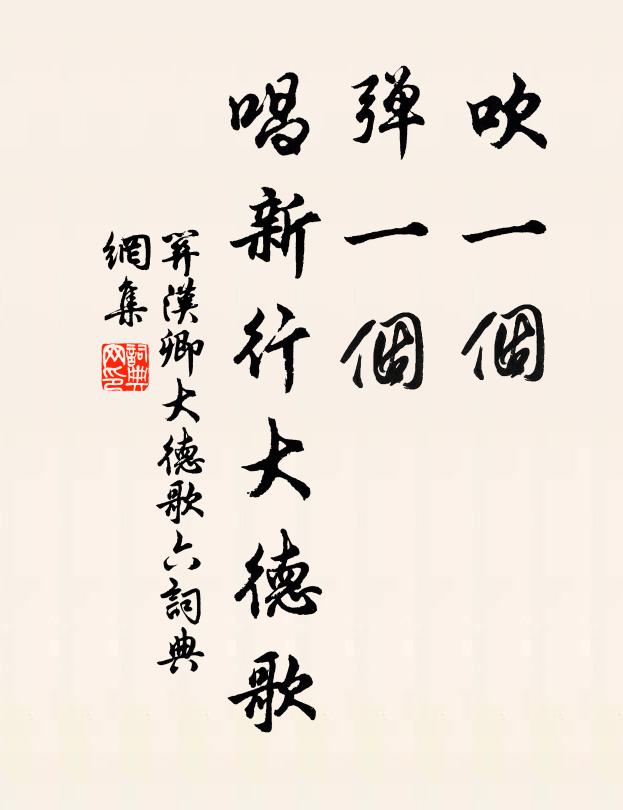 吹一個
彈一個
唱新行大德歌
關漢卿大德歌六詞典
網集
詞典網印